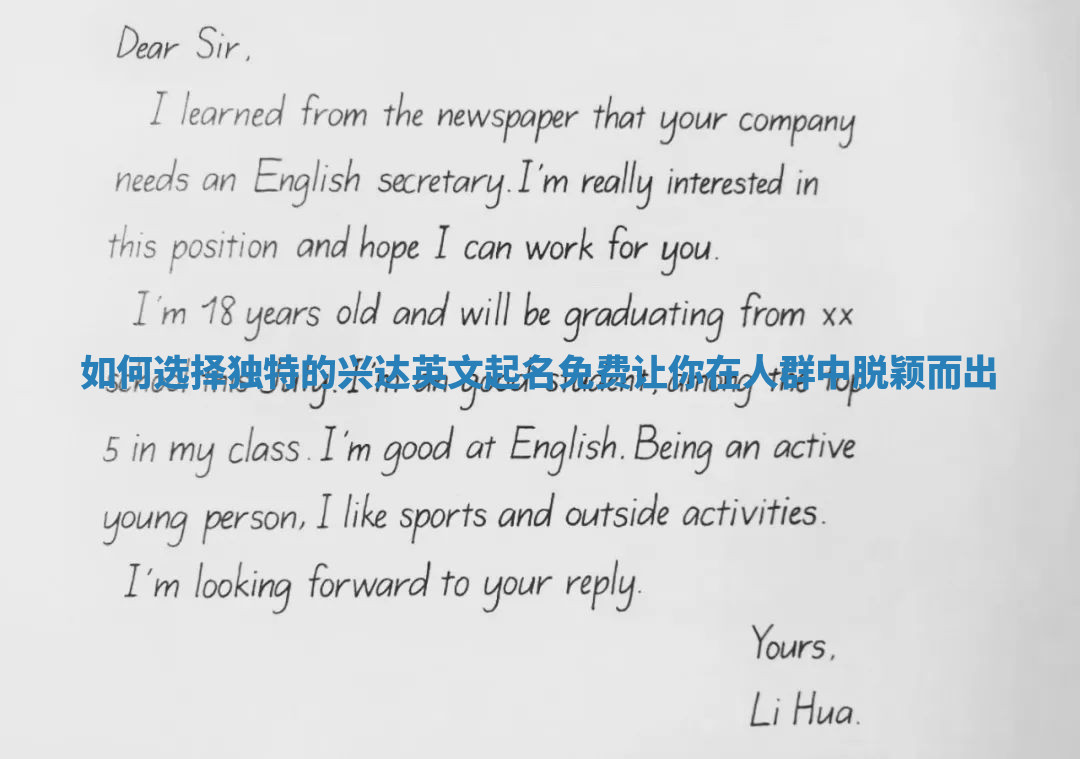 Dear Sir,
I learned from the newspaper that your company
needs an English secretary. I'm really interested in
this position and hope I can work for you.
I'm 18 years old and will be graduating from xx
如何选择独特的兴达英文起名免费让你在人群中脱颖而出
school this July. I'm an good student, among the top
5 in my class. I'm good at English. Being an active
young person, I like sports and outside activities.
I'm looking forward to your reply.
Yours,
Li Hua.